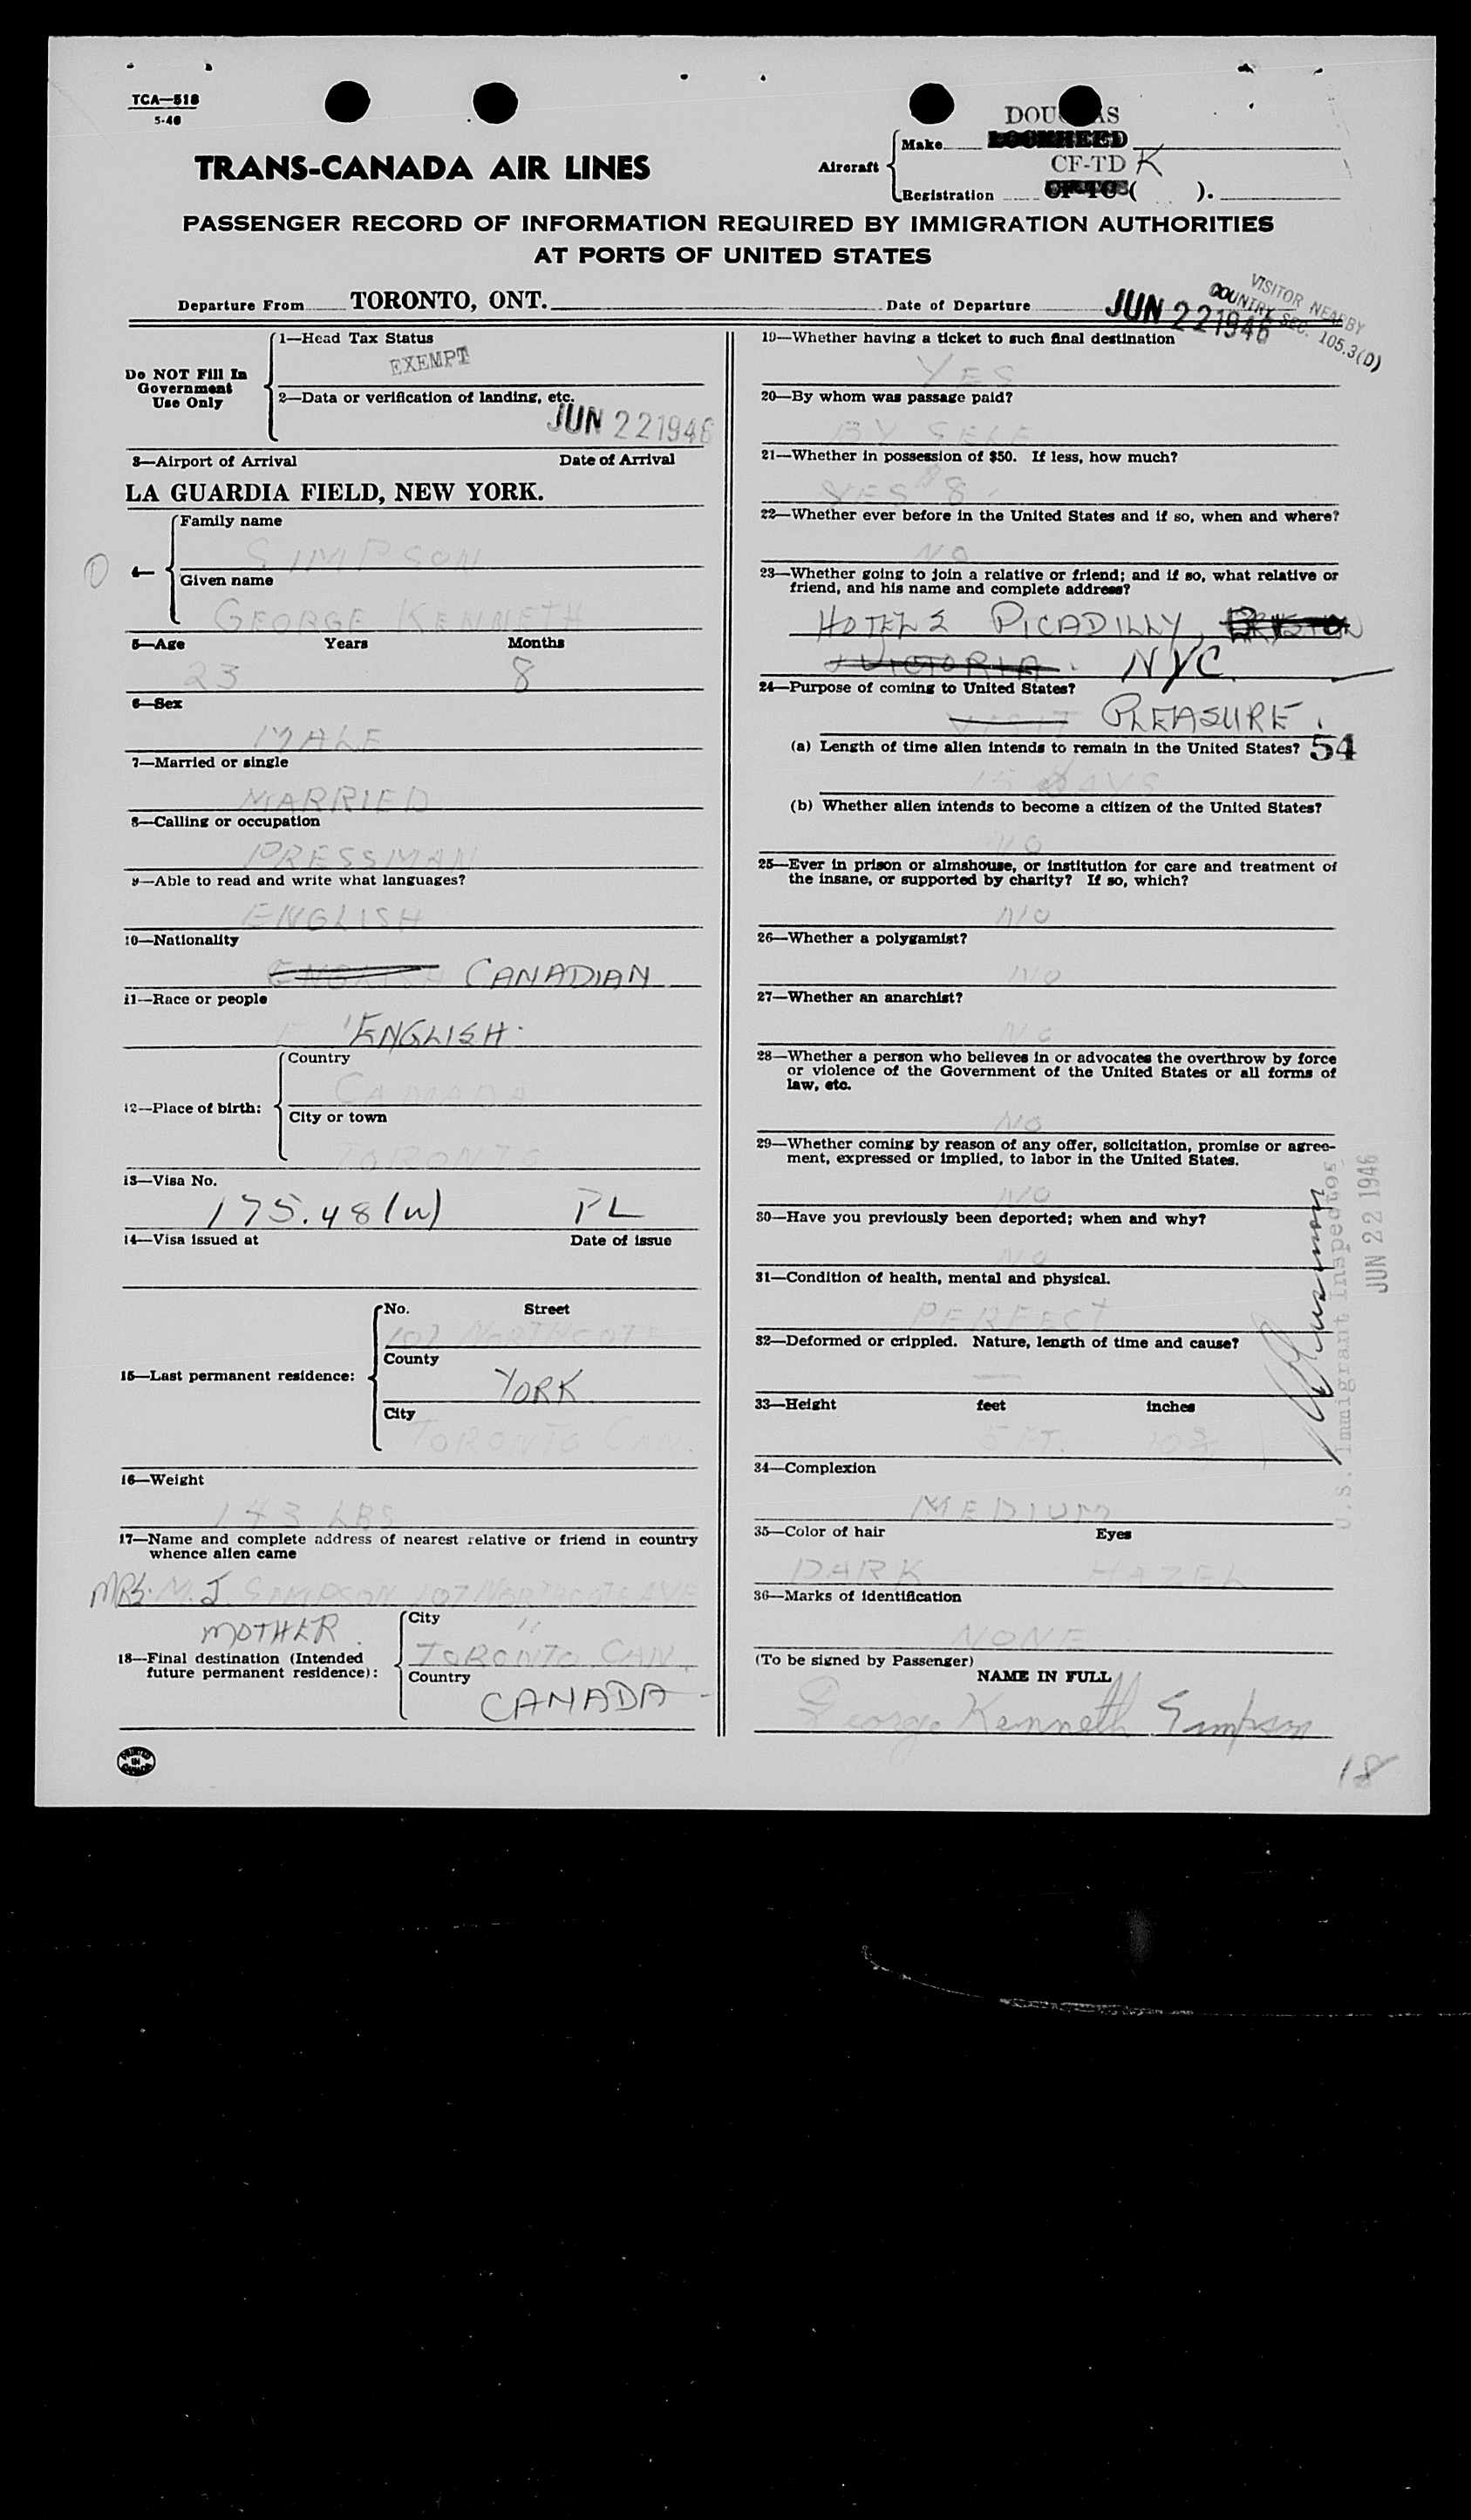 TCA—518
5-46
TRANS-CANADA AIR LINES
Aircraft
Make
DOUGLAS
LOCKHEED
CF-TD K
Registration
CF-TC ( ).
PASSENGER RECORD OF INFORMATION REQUIRED BY IMMIGRATION AUTHORITIES
AT PORTS OF UNITED STATES
Departure From TORONTO, ONT. Date of Departure JUN 22 1946
VISITOR NEARBY
COUNTRY SEC. 105.3(D)
Do NOT Fill In
Government
Use Only
1—Head Tax Status
EXEMPT
2—Data or verification of landing, etc.
JUN 22 1946
3—Airport of Arrival Date of Arrival
LA GUARDIA FIELD, NEW YORK.
4—
Family name
SIMPSON
Given name
GEORGE KENNETH
5—Age Years Months
23 8
6—Sex
MALE
7—Married or single
MARRIED
8—Calling or occupation
PRESSMAN
9—Able to read and write what languages?
ENGLISH
10—Nationality
ENGLISH CANADIAN
11—Race or people
ENGLISH.
12—Place of birth:
Country
CANADA
City or town
TORONTO
13—Visa No.
175.48(w) PL
14—Visa issued at Date of issue
15—Last permanent residence:
No. Street
107 NORTHCOTE
County
YORK
City
TORONTO CAN.
16—Weight
143 LBS
17—Name and complete address of nearest relative or friend in country
whence alien came
MRS. M. J. SIMPSON 107 NORTHCOTE AVE
MOTHER
18—Final destination (Intended
future permanent residence):
City "
TORONTO CAN.
Country
CANADA
PRINTED IN CANADA
19—Whether having a ticket to such final destination
YES
20—By whom was passage paid?
BY SELF
21—Whether in possession of $50. If less, how much?
YES $8
22—Whether ever before in the United States and if so, when and where?
NO
23—Whether going to join a relative or friend; and if so, what relative or
friend, and his name and complete address?
HOTELS PICADILLY,
VICTORIA. NYC.
24—Purpose of coming to United States?
VISIT PLEASURE.
(a) Length of time alien intends to remain in the United States? 54
15 DAYS
(b) Whether alien intends to become a citizen of the United States?
NO
25—Ever in prison or almshouse, or institution for care and treatment of
the insane, or supported by charity? If so, which?
NO
26—Whether a polygamist?
NO
27—Whether an anarchist?
NO
28—Whether a person who believes in or advocates the overthrow by force
or violence of the Government of the United States or all forms of
law, etc.
NO
29—Whether coming by reason of any offer, solicitation, promise or agree-
ment, expressed or implied, to labor in the United States.
NO
30—Have you previously been deported; when and why?
NO
31—Condition of health, mental and physical.
PERFECT
32—Deformed or crippled. Nature, length of time and cause?
—
33—Height feet inches
5 FT.
34—Complexion
MEDIUM
35—Color of hair Eyes
DARK HAZEL
36—Marks of identification
NONE
(To be signed by Passenger)
NAME IN FULL
George Kenneth Simpson
18
U.S. Immigrant Inspector
JUN 22 1946